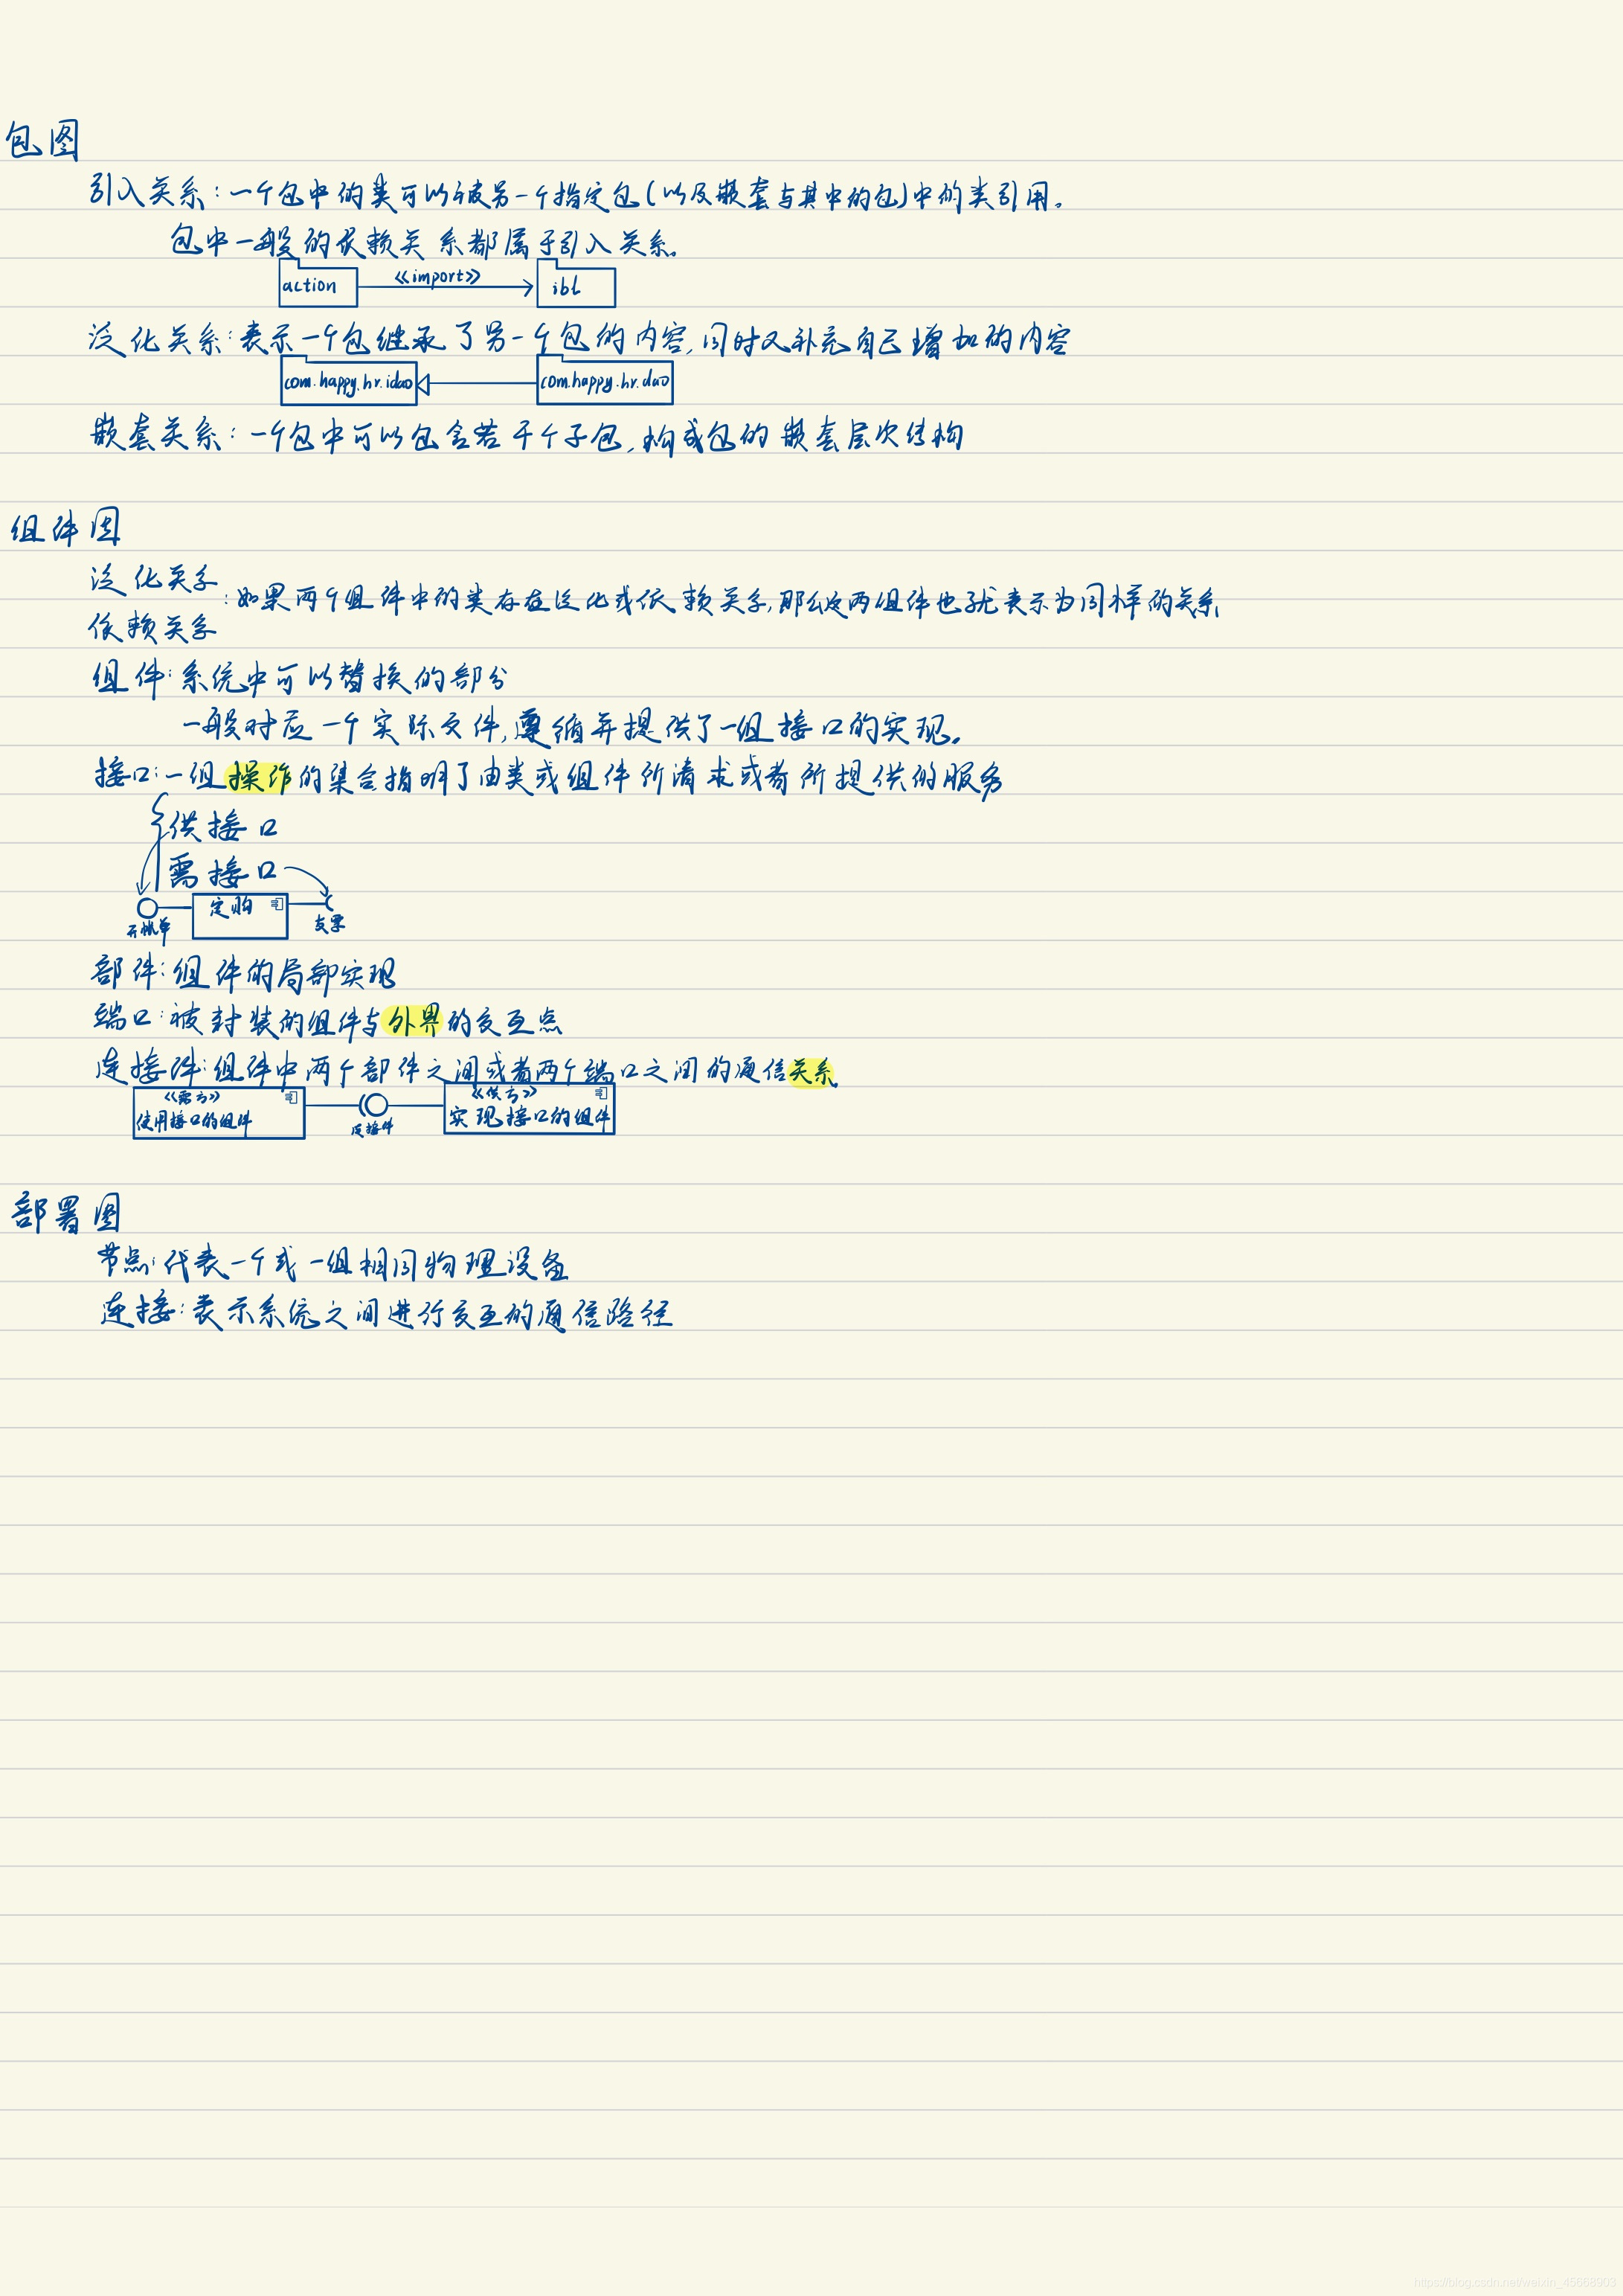 包图
引入关系:一个包中的类可以被另一个指定包(以及嵌套与其中的包)中的类引用。
包中一般的依赖关系都属于引入关系。
action <<import>> ibl
泛化关系:表示一个包继承了另一个包的内容,同时又补充自己增加的内容
com.happy.hr.idao com.happy.hr.dao
嵌套关系:一个包中可以包含若干个子包,构成包的嵌套层次结构
组件图
泛化关系
:如果两个组件中的类存在泛化或依赖关系,那么这两组件也就表示为同样的关系
依赖关系
组件:系统中可以替换的部分
一般对应一个实际文件,遵循并提供了一组接口的实现。
接口:一组操作的集合指明了由类或组件所请求或者所提供的服务
供接口
需接口
定购
支票
部件:组件的局部实现
端口:被封装的组件与外界的交互点
连接件:组件中两个部件之间或者两个端口之间的通信关系
<<需方>> <<供方>>
使用接口的组件 接件 实现接口的组件
部署图
节点:代表一个或一组相同物理设备
连接:表示系统之间进行交互的通信路径
https://blog.csdn.net/weixin_45668903